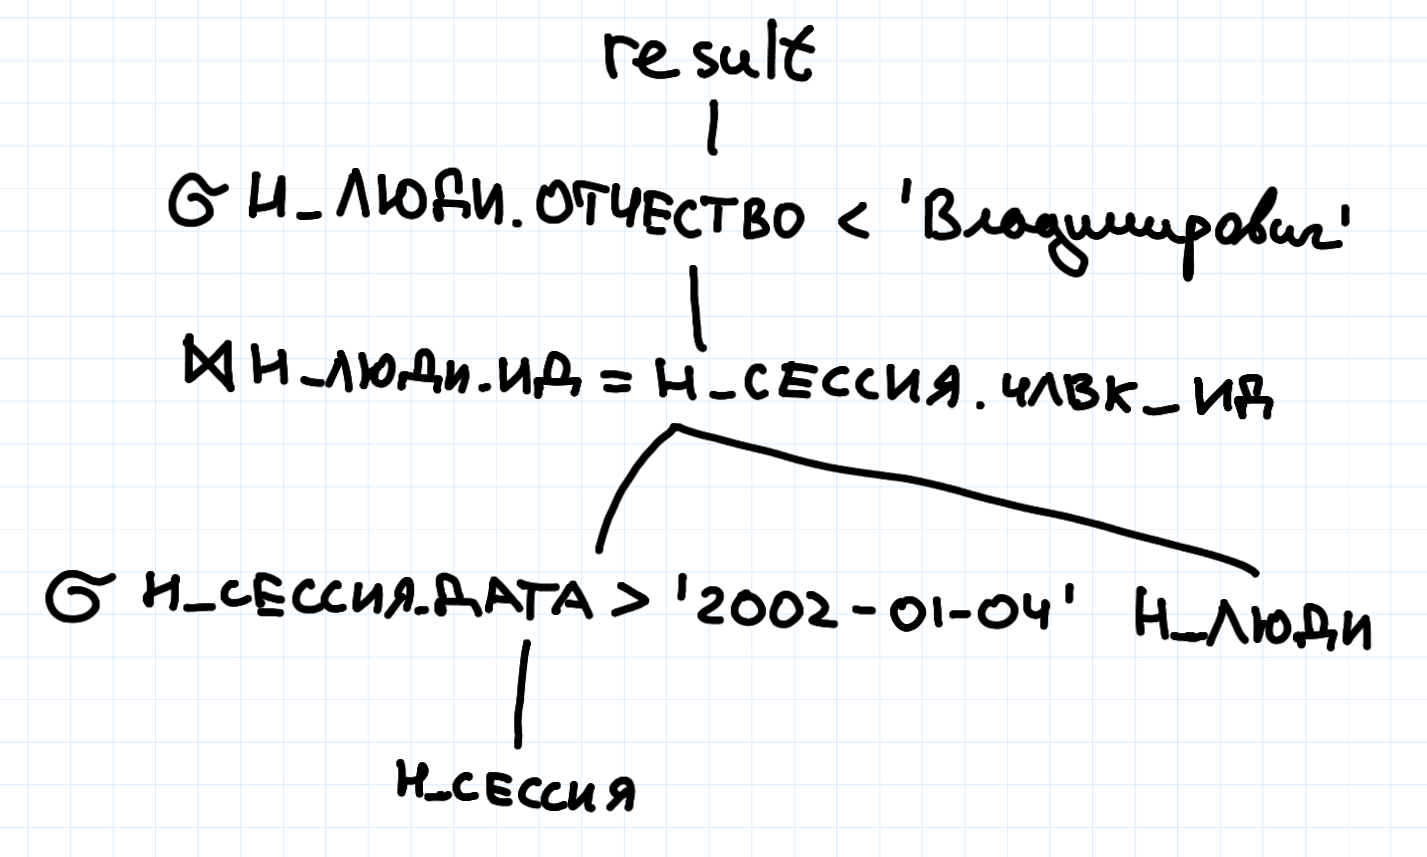 result
σ Н_ЛЮДИ.ОТЧЕСТВО < 'Владимирович'
⋈ Н_ЛЮДИ.ИД = Н_СЕССИЯ.ЧЛВК_ИД
σ Н_СЕССИЯ.ДАТА > '2002-01-04' Н_ЛЮДИ
Н_СЕССИЯ